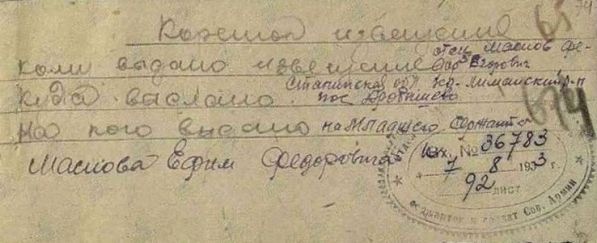 65
74
Корешок извещение
Кому выдано извещение отец Маслов Федор Егорович
Куда выслано Сталинская обл Кр-Лиманский р-н
пос Дробышево
674
На кого выдано на младшего сержанта
Маслова Ефим Федоровича
Исх. № 36783
7 8 1953 г.
92 лист
сержантов и солдат Сов. Армии